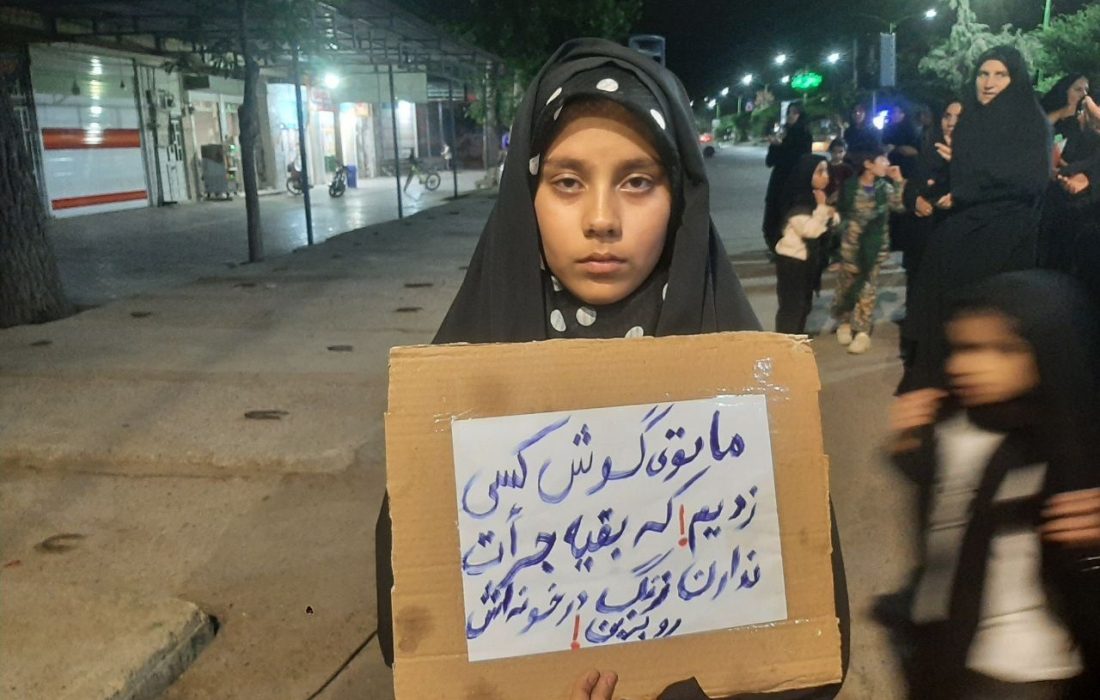 ما توی گوش کسی
زدیم! که بقیه جرأت
ندارن زنگ در خونه اش
رو بزنن!